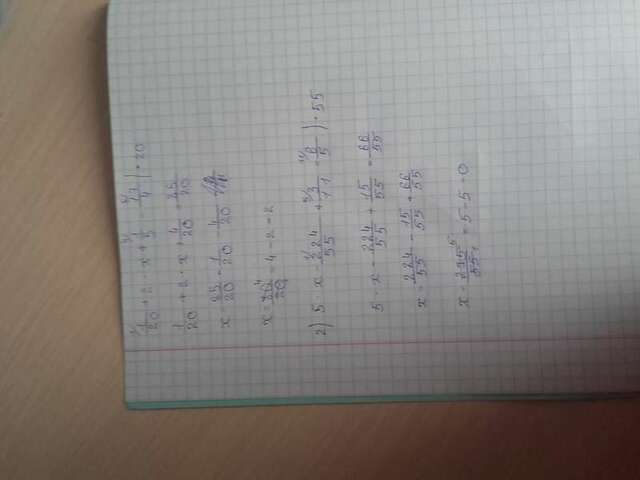 1/20 + 2 · x + 1/5 | · 20
1/20 + 2 · x + 4/20 = 25/20
x = 25/20 - 1/20 - 4/20
x = 20 = 4 - 2 = 2
2) 5 x - 224/55 + 3/11 = 6/5 | · 55
5 - x - 224/55 + 15/55 = 66/55
x = 224/55 - 15/55 + 66/55
x - 275/55 = 5 - 5 = 0